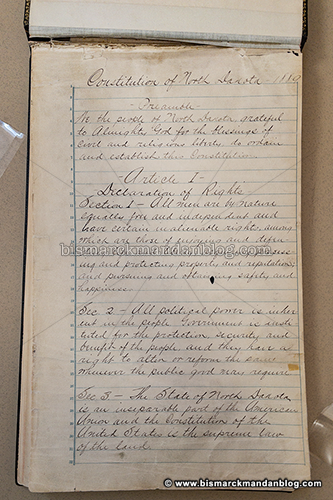 Constitution of North Dakota
Preamble
We the people of North Dakota grateful
to Almighty God for the blessings of
civil and religious liberty, do ordain
and establish this Constitution
Article I
Declaration of Rights
Section 1 - All men are by nature
equally free and independent and
have certain inalienable rights, among
which are those of enjoying and defen
bismarckmandanblog.com
ing and protecting property and reputation
and pursuing and obtaining safety and
happiness
Sec 2 - All political power is inher
ent in the people Government is insti
tuted for the protection, security, and
benefit of the people and they have a
right to alter or reform the same
whenever the public good may require
Sec 3 - The State of North Dakota
is an inseparable part of the American
Union and the Constitution of the
United States is the supreme law
of the land.
© www.bismarckmandanblog.com